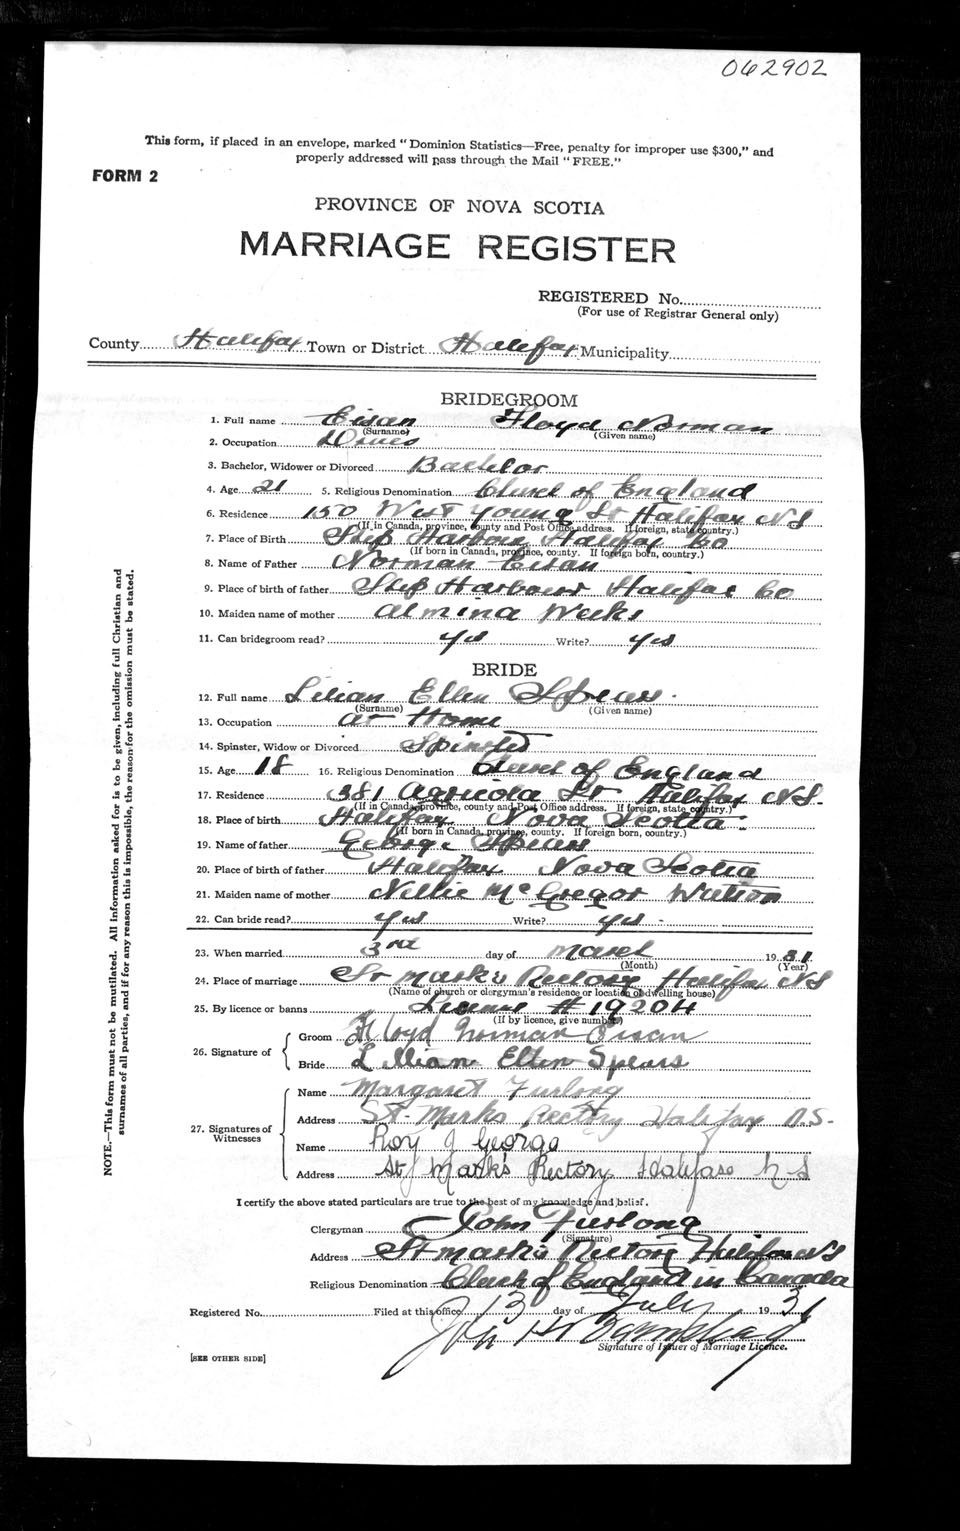 062902
This form, if placed in an envelope, marked "Dominion Statistics—Free, penalty for improper use $300," and
properly addressed will pass through the Mail "FREE."
FORM 2
PROVINCE OF NOVA SCOTIA
MARRIAGE REGISTER
REGISTERED No.
(For use of Registrar General only)
County Halifax Town or District Halifax Municipality
BRIDEGROOM
1. Full name Eisan Floyd Norman
(Surname) (Given name)
2. Occupation
3. Bachelor, Widower or Divorced Bachelor
4. Age 21 5. Religious Denomination Church of England
6. Residence 150 West Young St Halifax NS
(If in Canada, province, county and Post Office address. If foreign, state country.)
7. Place of Birth Ship Harbour Halifax Co
(If born in Canada, province, county. If foreign born, country.)
8. Name of Father Norman Eisan
9. Place of birth of father Ship Harbour Halifax Co
10. Maiden name of mother Almina Weeks
11. Can bridegroom read? yes Write? yes
BRIDE
12. Full name Lilian Ellen Spears
(Surname) (Given name)
13. Occupation at Home
14. Spinster, Widow or Divorced Spinster
15. Age 18 16. Religious Denomination Church of England
17. Residence 381 Agricola St Halifax NS.
(If in Canada, province, county and Post Office address. If foreign, state country.)
18. Place of birth Halifax Nova Scotia
(If born in Canada, province, county. If foreign born, country.)
19. Name of father George Spears
20. Place of birth of father Halifax Nova Scotia
21. Maiden name of mother Nellie McGregor
22. Can bride read? yes Write? yes
23. When married 3rd day of March 1931
(Month) (Year)
24. Place of marriage St Mark's Rectory Halifax NS
(Name of church or clergyman's residence or location of dwelling house)
25. By licence or banns License # 19204
(If by licence, give number)
26. Signature of
Groom Floyd Norman Eisan
Bride Lillian Ellen Spears
27. Signatures of Witnesses
Name Margaret Furlong
Address St. Marks Rectory Halifax N.S.
Name Roy J George
Address St Mark's Rectory Halifax N S
I certify the above stated particulars are true to the best of my knowledge and belief.
Clergyman John Furlong
(Signature)
Address St Mark's Rectory Halifax NS
Religious Denomination Church of England in Canada
Registered No. Filed at this office 13 day of July 1931
Signature of Issuer of Marriage Licence.
[SEE OTHER SIDE]
NOTE.—This form must not be mutilated. All information asked for is to be given, including full Christian and
surnames of all parties, and if for any reason this is impossible, the reason for the omission must be stated.